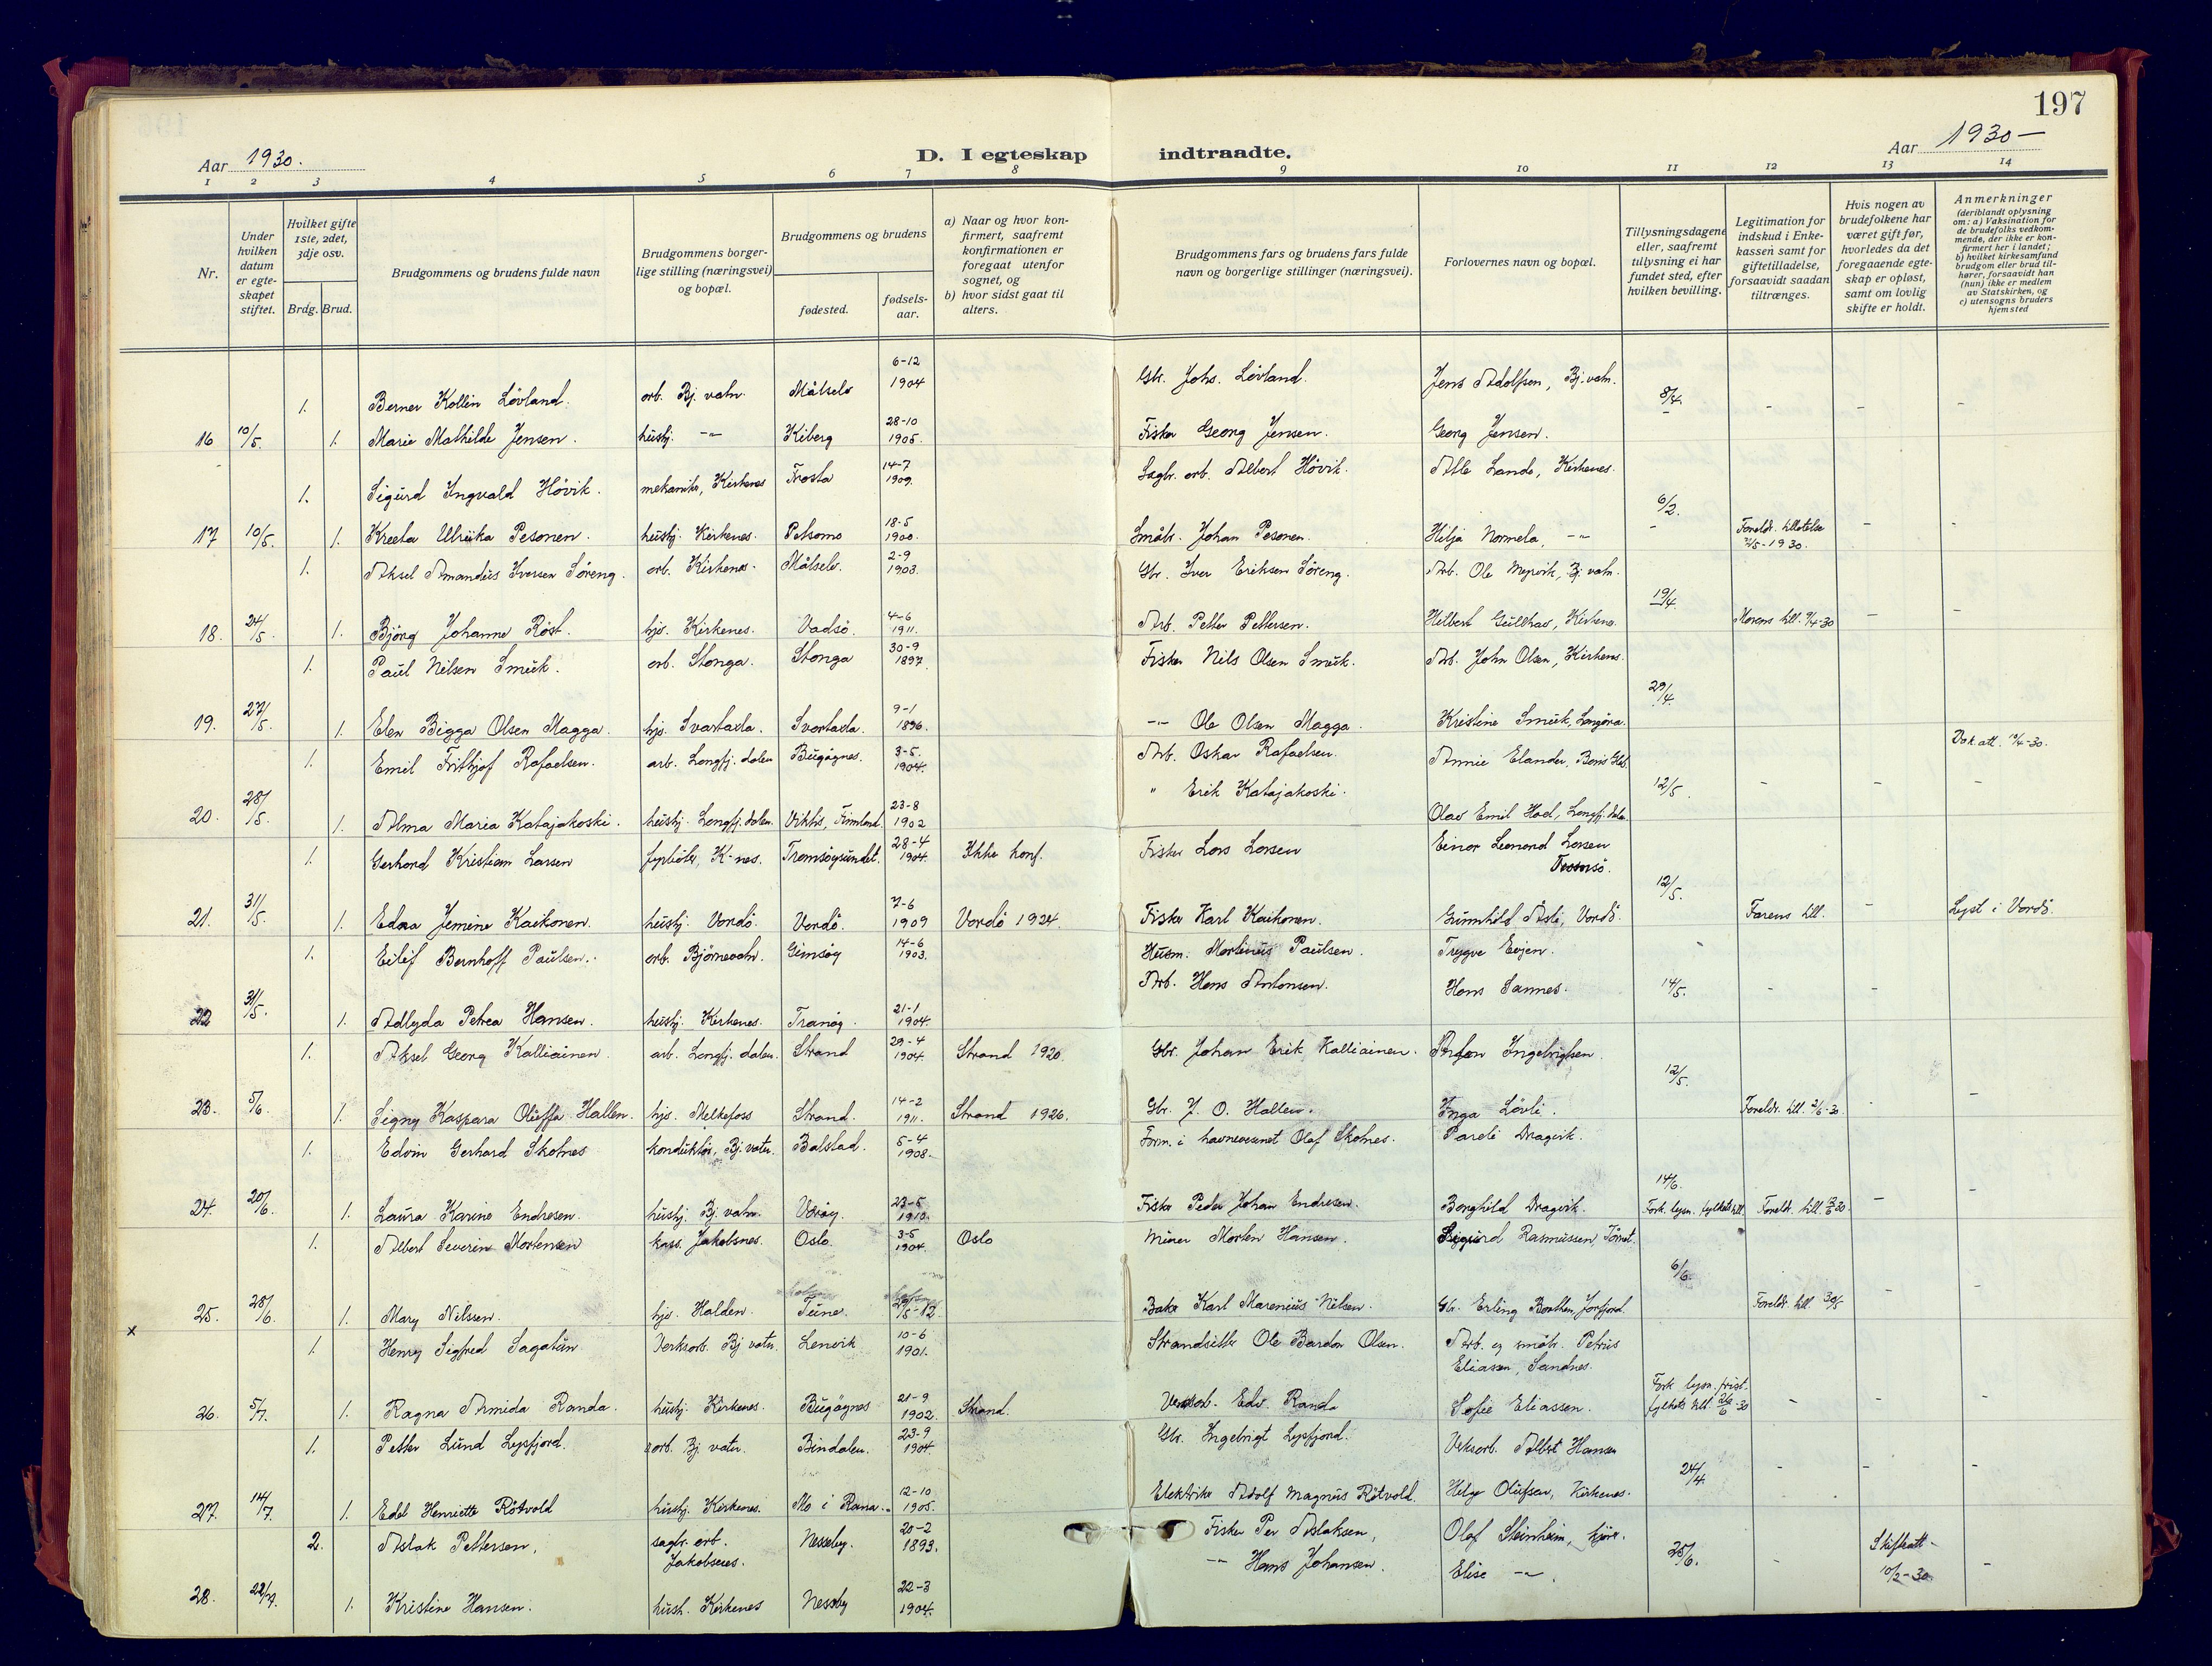 197
Aar 1930.
D. I egteskap indtraadte.
Aar 1930-
1 2 3 4 5 6 7 8 9 10 11 12 13 14
Nr.
Under hvilken datum er egteskapet stiftet.
Hvilket gifte 1ste, 2det, 3dje osv.
Brdg. Brud.
Brudgommens og brudens fulde navn
Brudgommens borgerlige stilling (næringsvei) og bopæl.
Brudgommens og brudens
fødested.
fødselsaar.
a) Naar og hvor konfirmert, saafremt konfirmationen er foregaat utenfor sognet, og
b) hvor sidst gaat til alters.
Brudgommens fars og brudens fars fulde navn og borgerlige stillinger (næringsvei).
Forlovernes navn og bopæl.
Tillysningsdagene eller, saafremt tillysning ei har fundet sted, efter hvilken bevilling.
Legitimation for indskud i Enkekassen samt for giftetilladelse, forsaavidt saadan tiltrænges.
Hvis nogen av brudefolkene har været gift før, hvorledes da det foregaaende egteskap er opløst, samt om lovlig skifte er holdt.
Anmerkninger
(deriblandt oplysning om: a) Vaksination for de brudefolks vedkommende, der ikke er konfirmert her i landet; b) hvilket kirkesamfund brudgom eller brud tilhører, forsaavidt han (hun) ikke er medlem av Statskirken, og c) utensogns bruders hjemsted
1. Berner Kollin Lövland. arb. Bj. vatn. Målselv 6-12 1904 Gbr. Johs. Lövland. Jens Adolfsen, Bj. vatn. 8/4. - - -
16 10/5. 1. Marie Mathilde Jensen. hushj. -"- Kiberg 28-10 1905. Fisker Georg Jensen. Georg Jensen.
1. Sigurd Ingvald Hövik. mekaniker, Kirkenes Frosta 14-7 1909. Sagbr. arb. Albert Hövik. Atle Lande, Kirkenes.
17 10/5. 1. Kreeta Ulriika Pesonen. hushj. Kirkenes. Petsamo 18-5 1900. Småbr. Johan Pesonen. Hilja Normela, -"- 6/2. Foreldr. tillatelse 1930. - -
1. Aksel Amandus Iversen Söreng. arb. Kirkenes. Målselv. 2-9 1903. Gbr. Iver Eriksen Söreng. Arb. Ole Myrvik, Bj. vatn.
18. 24/5. 1. Björg Johanne Röst. hjv. Kirkenes. Vadsö. 4-6 1911. Arb. Petter Pettersen. Hilbert Gullhav, Kirkenes 19/4. Morens till. 9/4-30 - -
1. Paul Nilsen Smuk. arb. Stonga. Stonga 30-9 1897. Fisker Nils Olsen Smuk. Arb. John Olsen, Kirkenes.
19. 27/5. 1. Elen Bigga Olsen Magga. hjv. Svartaxla. Svartaxla. 9-1 1896. -"- Ole Olsen Magga. Kristine Smuk, Langöra. 29/4.
1. Emil Frithjof Rafaelsen. arb. Langfj. dalen Bugöynes. 3-5. 1904. Arb. Oskar Rafaelsen. Annie Elander, Boris Gleb. Vak. att. 12/4-30.
20. 28/5. 1. Alma Maria Katajakoski. hushj. Langfj. dalen. Viktis, Finnland 23-8 1902 " Erik Katajakoski. Olav Emil Hod, Langfj. dalen 12/5. - - -
1. Gerhard Kristian Larsen fyrböter, K-nes. Tromsöysundet. 28-4 1904. Ikke konf. Fisker Lars Larsen Einar Leonard Larsen Tromsö.
21. 31/5. 1. Edna Jemine Kaikonen. hushj. Vardö. Vardö. 7-6 1909 Vardö 1924. Fisker Karl Kaikonen. Gunnhild Asli, Vardö. 12/5. Farens till. - Lyst i Vardö.
1. Eilif Bernhoff Paulsen. arb. Björnevatn. Gimsöy 14-6 1903. Husm. Martinus Paulsen. Trygve Evjen.
22 31/5. 1. Adlyda Petrea Hansen. hushj. Kirkenes. Tranöy. 21-1 1904. Arb. Hans Antonsen. Hans Sannes. 14/5. - - -
1. Aksel Georg Kalliainen. arb. Langfj. dalen. Strand 29-4 1904. Strand 1920. Gbr. Johan Erik Kalliainen. Ingebrigtsen.
23. 5/6. 1. Signy Kaspara Oluffa Hallen. hjv. Melkefoss Strand. 14-2 1911. Strand 1926. Gbr. J. O. Hallen. Inga Lövli. 12/5. Foreldr. till. 2/6-30. - -
1. Edvin Gerhard Skotnes konduktör, Bj. vatn. Balstad. 5-4 1908. Form. i havnevesenet Olaf Skotnes. Pareli Dragvik.
24. 20/6. 1. Laura Karine Endresen. hushj. Bj. vatn. Väröy. 23-5 1910. Fisker Peder Johan Endresen. Borghild Dragvik. 14/6. Fork. lysn. fylkets till. Foreldr. till. - -
1. Albert Severin Mortensen kass. Jakobsnes. Oslo. 3-5 1904. Oslo Murer Morten Hansen. Sigurd Rasmussen,
25. 28/6. 1. Mary Nilssen. hjv. Halden. Tune. Baker Karl Marenius Nilsen. Gbr. Erling Borthen, Jarfjord 6/6. Foreldr. till. 30/5 - -
x 1. Henry Sigfred Sagatun Verksarb. Bj vatn. Lenvik 10-6 1901. Strandsitter Ole Bardon Olsen. Arb. og småbr. Petrus Eliassen, Sandnes.
26. 5/7. 1. Ragna Armida Randa. hushj. Kirkenes. Bugöynes 21-9 1902. Strand. Verksarb. Edv. Randa Sofie Eliassen. Fork. lysn. frist. fylkets till. 26/6-30 - - -
1. Petter Lund Lysfjord. arb. Bj vatn. Bindalen. 23-9 1904. Gbr. Ingebrigt Lysfjord. Verksarb. Albert Hansen
27. 14/7. 1. Edel Henriette Rötvold hushj. Kirkenes. Mo i Rana. 12-10. 1905. Elektriker Adolf Magnus Rötvold. Helge Olufsen, Kirkenes. 24/4. - - -
2. Aslak Pettersen, sagbr. arb. Jakobsnes. Nesseby. 20-2 1893. Fisker Per Aslaksen, Olaf Steinheim,
28. 22/7. 1. Kristine Hansen. hush. Kirkenes Nesseby 22-3 1904. -"- Hans Johansen. Elise -"-. 25/6. - Skifteatt- 10/2-30. -